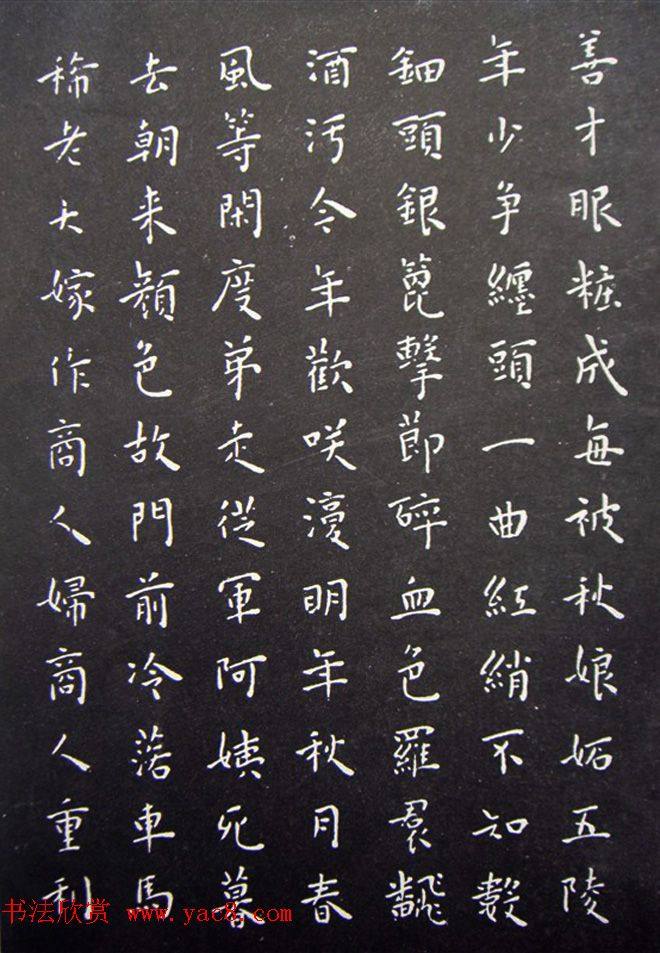 善才眼粧成每被秋娘妬五陵
年少争纏頭一曲紅綃不知數
鈿頭銀篦擊節碎血色羅裠飜
酒污今年歡咲復明年秋月春
風等閑度弟走從軍阿姨死暮
去朝来顏色故門前冷落車馬
稀老大嫁作商人婦商人重利
书法欣赏 www.yac8.com